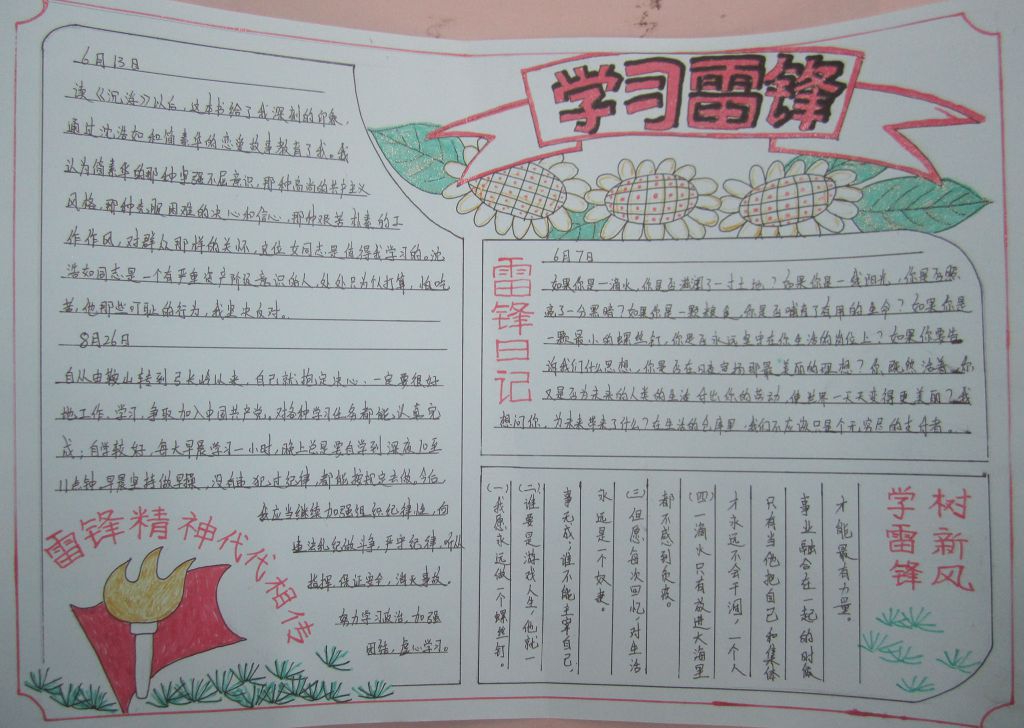 学习雷锋
6月13日
读《沉浮》以后，这本书给了我深刻的印象，
通过沈浩如和简素华的恋爱故事教育了我。我
认为简素华的那种坚强不屈意识，那种高尚的共产主义
风格，那种克服困难的决心和信心，那种艰苦朴素的工
作作风，对群众那样的关怀，这位女同志是值得我学习的。沈
浩如同志是一个有严重资产阶级意识的人，处处只为个人打算，怕吃
苦，他那些可耻的行为，我坚决反对。
8月26日
自从由鞍山转到弓长岭以来，自己就抱定决心，一定要很好
地工作、学习，争取加入中国共产党，对各种学习任务都能认真完
成；自学较好，每天早晨学习一小时，晚上总是要自学到深夜10至
11点钟。早晨坚持做早操，没有违犯过纪律，都能按规定去做。今后
我应当继续加强组织纪律性，向
违法乱纪做斗争，严守纪律，听从
指挥，保证安全，消灭事故。
努力学习政治，加强
团结，虚心学习。
雷锋精神代代相传
雷锋日记
6月7日
如果你是一滴水，你是否滋润了一寸土地？如果你是一线阳光，你是否照
亮了一分黑暗？如果你是一颗粮食，你是否哺育了有用的生命？如果你是
一颗最小的螺丝钉，你是否永远坚守在你生活的岗位上？如果你要告
诉我们什么思想，你是否在日夜宣扬那最美丽的理想？你既然活着，你
又是否为未来的人类的生活付出你的劳动，使世界一天天变得更美丽？我
想问你，为未来带来了什么？在生活的仓库里，我们不应该只是个无穷尽的支付者。
树新风
学雷锋
才能最有力量。
事业融合在一起的时候
只有当他把自己和集体
才永远不会干涸，一个人
(四)一滴水只有放进大海里
都不感到负疚。
(三)但愿每次回忆，对生活
永远是一个奴隶。
事无成；谁不能主宰自己，
(二)谁要是游戏人生，他就一
(一)我愿永远做一个螺丝钉。